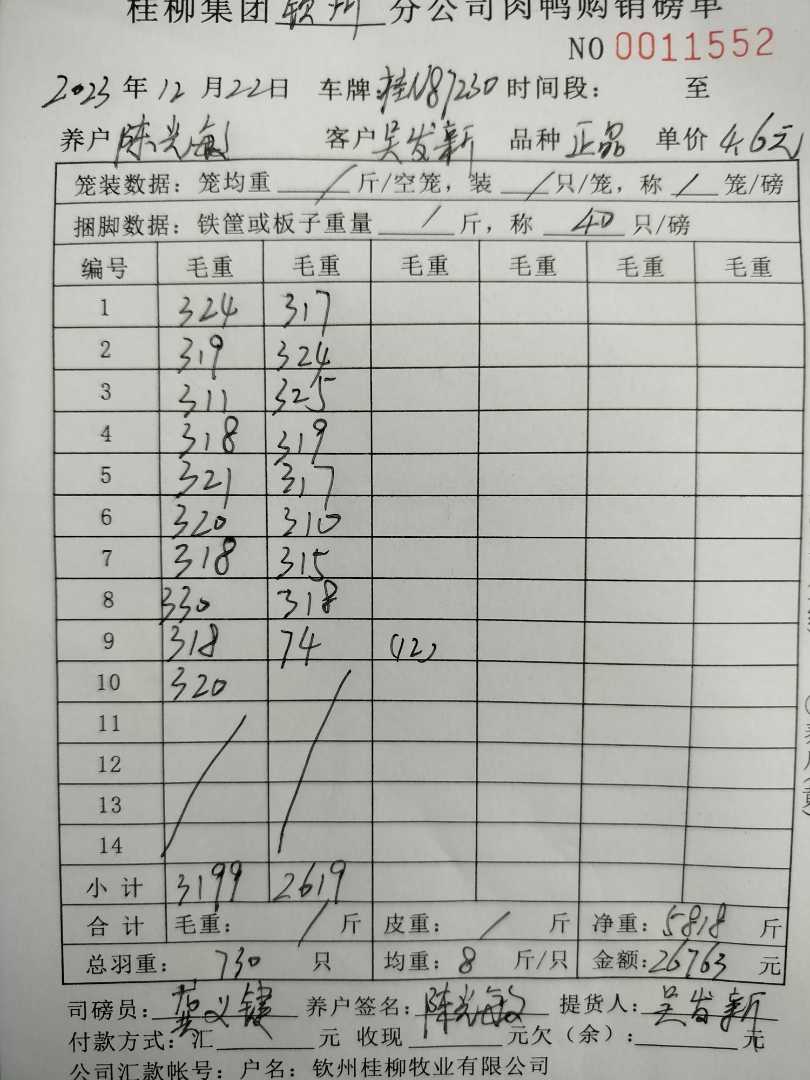 桂柳集团 钦州 分公司肉鸭购销磅单
NO 0011552
2023 年 12 月 22 日 车牌:桂N87230 时间段: 至
养户 陈光敏 客户 吴发新 品种 正品 单价 4.6元
笼装数据: 笼均重 / 斤/空笼, 装 / 只/笼, 称 / 笼/磅
捆脚数据: 铁筐或板子重量 / 斤, 称 40 只/磅
编号 毛重 毛重 毛重 毛重 毛重 毛重
1 324 317
2 319 324
3 311 325
4 318 319
5 321 317
6 320 310
7 318 315
8 330 318
9 318 74 (12)
10 320
11
12
13
14
小 计 3199 2619
合 计 毛重: / 斤 皮重: / 斤 净重: 5818 斤
总羽重: 730 只 均重: 8 斤/只 金额: 26763 元
司磅员: 义键 养户签名: 陈光敏 提货人: 吴发新
付款方式: 汇 元 收现 元欠(余): 元
公司汇款帐号: 户名: 钦州桂柳牧业有限公司